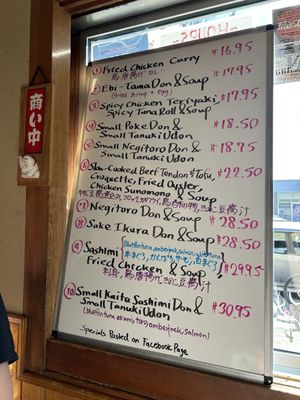 ① Fried Chicken Curry $16.95
鳥唐揚げカレー
② Ebi-Tama Don & Soup $17.95
(fried shrimp + egg)
③ Spicy Chicken Teriyaki, $17.95
Spicy Tuna Roll & Soup
④ Small Poke Don & $18.50
Small Tanuki Udon
⑤ Small Negitoro Don & $18.75
Small Tanuki Udon
⑥ Slow-Cooked Beef Tendon & Tofu, $22.50
Croquette, Fried Oyster,
Chicken Sunomono & Soup
⑦ Negitoro Don & Soup $28.50
⑧ Sake Ikura Don & Soup $28.50
⑨ Sashimi
Fried Chicken & Soup $29.95
刺身、鳥唐揚げ、きのこ豆腐汁
⑩ Small Kaita Sashimi Don & $30.95
Small Tanuki Udon
(bluefin tuna akami, toro, amberjack, salmon)
Specials Posted on Facebook Page
商い中